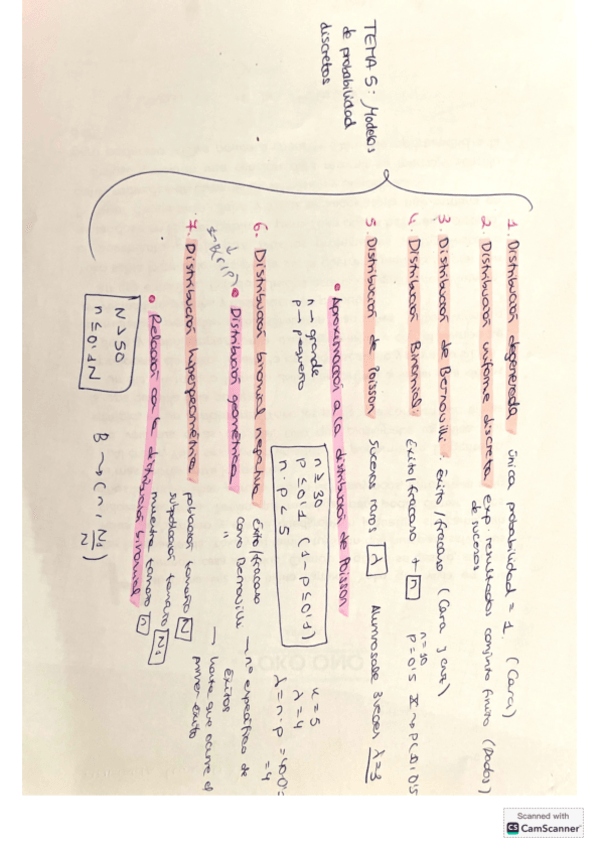 TEMA 5: Modelos
de probabilidad
discretos
1. Distribución degenerada única probabilidad = 1. (Cara)
2. Distribución uniforme discreta exp. resultados conjunto finito (Dados)
de sucesos
3. Distribución de Bernouilli. éxito/fracaso (Cara y cruz)
4. Distribución Binomial: Exito/fracaso + n
n=10
p=0'5
5. Distribución de Poisson Sucesos raros λ Alumno sale 3 veces λ=3
• Aproximación a la distribución de Poisson
n → grande
p → pequeño
n ≥ 30
p ≤ 0'1 (1-p ≤ 0'1)
n · p < 5
λ=4
λ = n·p =
= 4
6. Distribución binomial negativa Éxito/fracaso
como Bernouilli → nº específico de
éxitos
• Distribución geométrica " — hasta que ocurre el
primer éxito
7. Distribución hipergeométrica población tamaño N
subpoblación tamaño N1
muestra tamaño n
• Relación con la distribución binomial
N > 50
n ≤ 0'1N
B → (n, N1/N)
Scanned with
CS CamScanner